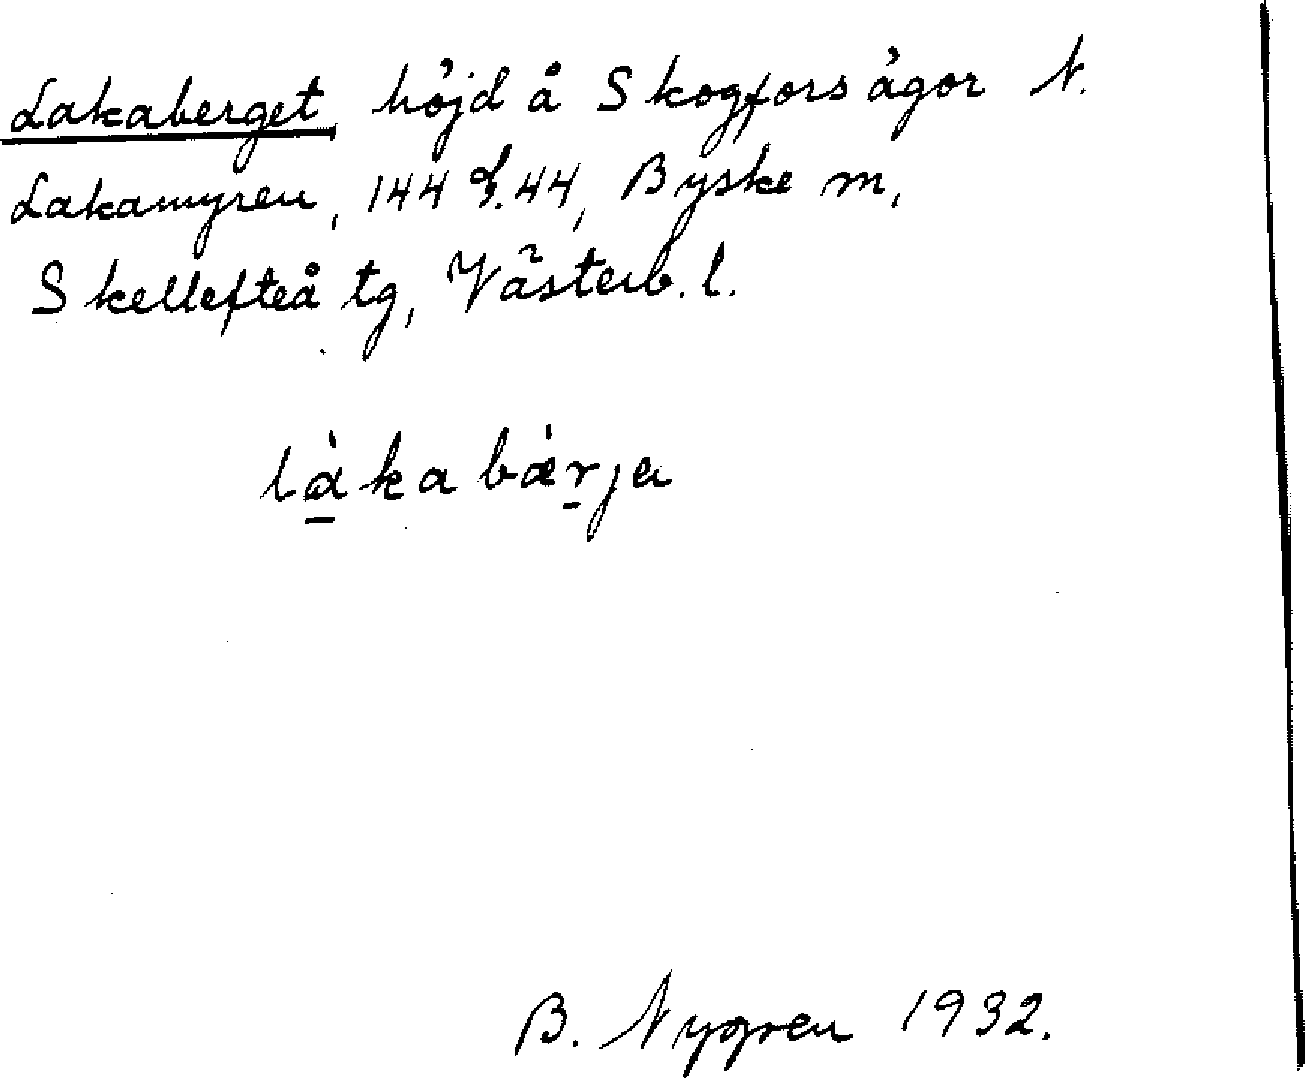 Lakaberget, höjd å Skogfors ägor N.
Lakamyren, 144 G.44, Byske m,
Skellefteå tg, Västerb. l.
làka bä̀rja
B. Nygren 1932.